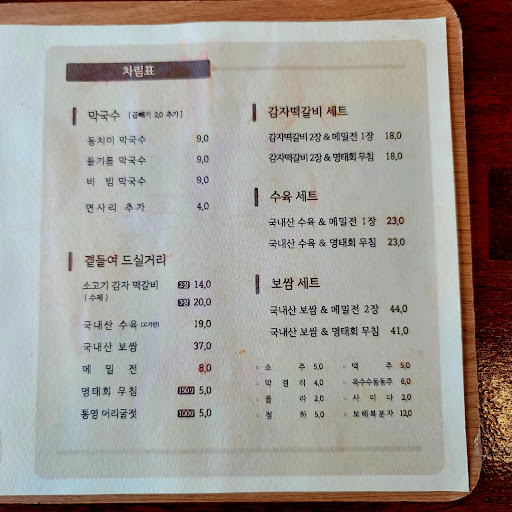 차림표
막국수 [곱빼기 2,0 추가]
동치미 막국수 9,0
들기름 막국수 9,0
비 빔 막국수 9,0
면사리 추가 4,0
곁들여 드실거리
소고기 감자 떡갈비 2장 14,0
(수제) 3장 20,0
국내산 수육 (고기만) 19,0
국내산 보쌈 37,0
메 밀 전 8,0
명태회 무침 150g 5,0
통영 어리굴젓 100g 5,0
감자떡갈비 세트
감자떡갈비 2장 & 메밀전 1장 18,0
감자떡갈비 2장 & 명태회 무침 18,0
수육 세트
국내산 수육 & 메밀전 1장 23,0
국내산 수육 & 명태회 무침 23,0
보쌈 세트
국내산 보쌈 & 메밀전 2장 44,0
국내산 보쌈 & 명태회 무침 41,0
소 주 5,0 맥 주 5,0
막 걸 리 4,0 옥수수동동주 6,0
콜 라 2,0 사 이 다 2,0
청 하 5,0 보해복분자 12,0